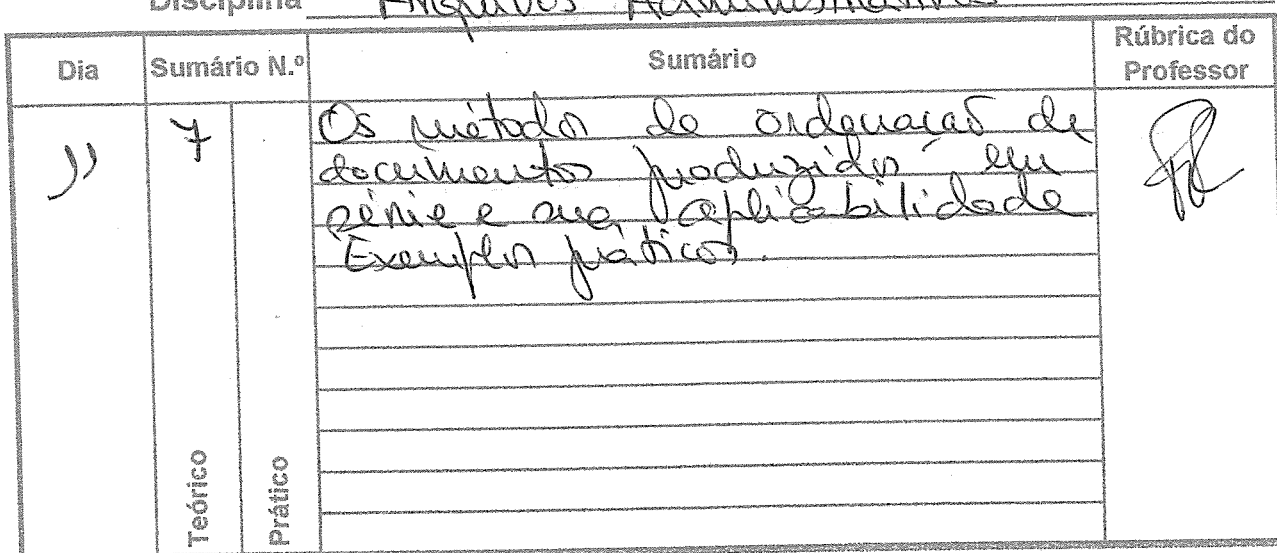 Disciplina Arquivos Administrativos
Dia Sumário N.º Sumário Rúbrica do Professor
)) 7 Os métodos de ordenação de
documentos produzidos em
série e sua aplicabilidade
Exemplos práticos.
Teórico
Prático